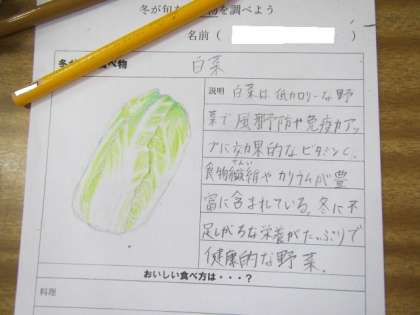 冬が旬な　物を調べよう
名前（　　）
冬が　食べ物
白菜
説明 白菜は低カロリーな野
菜で風邪予防や免疫力アッ
プに効果的なビタミンC、
食物繊維やカリウムが豊
せんい
富に含まれている。冬に不
足しがちな栄養がたっぷりで
健康的な野菜。
おいしい食べ方は・・・？
料理